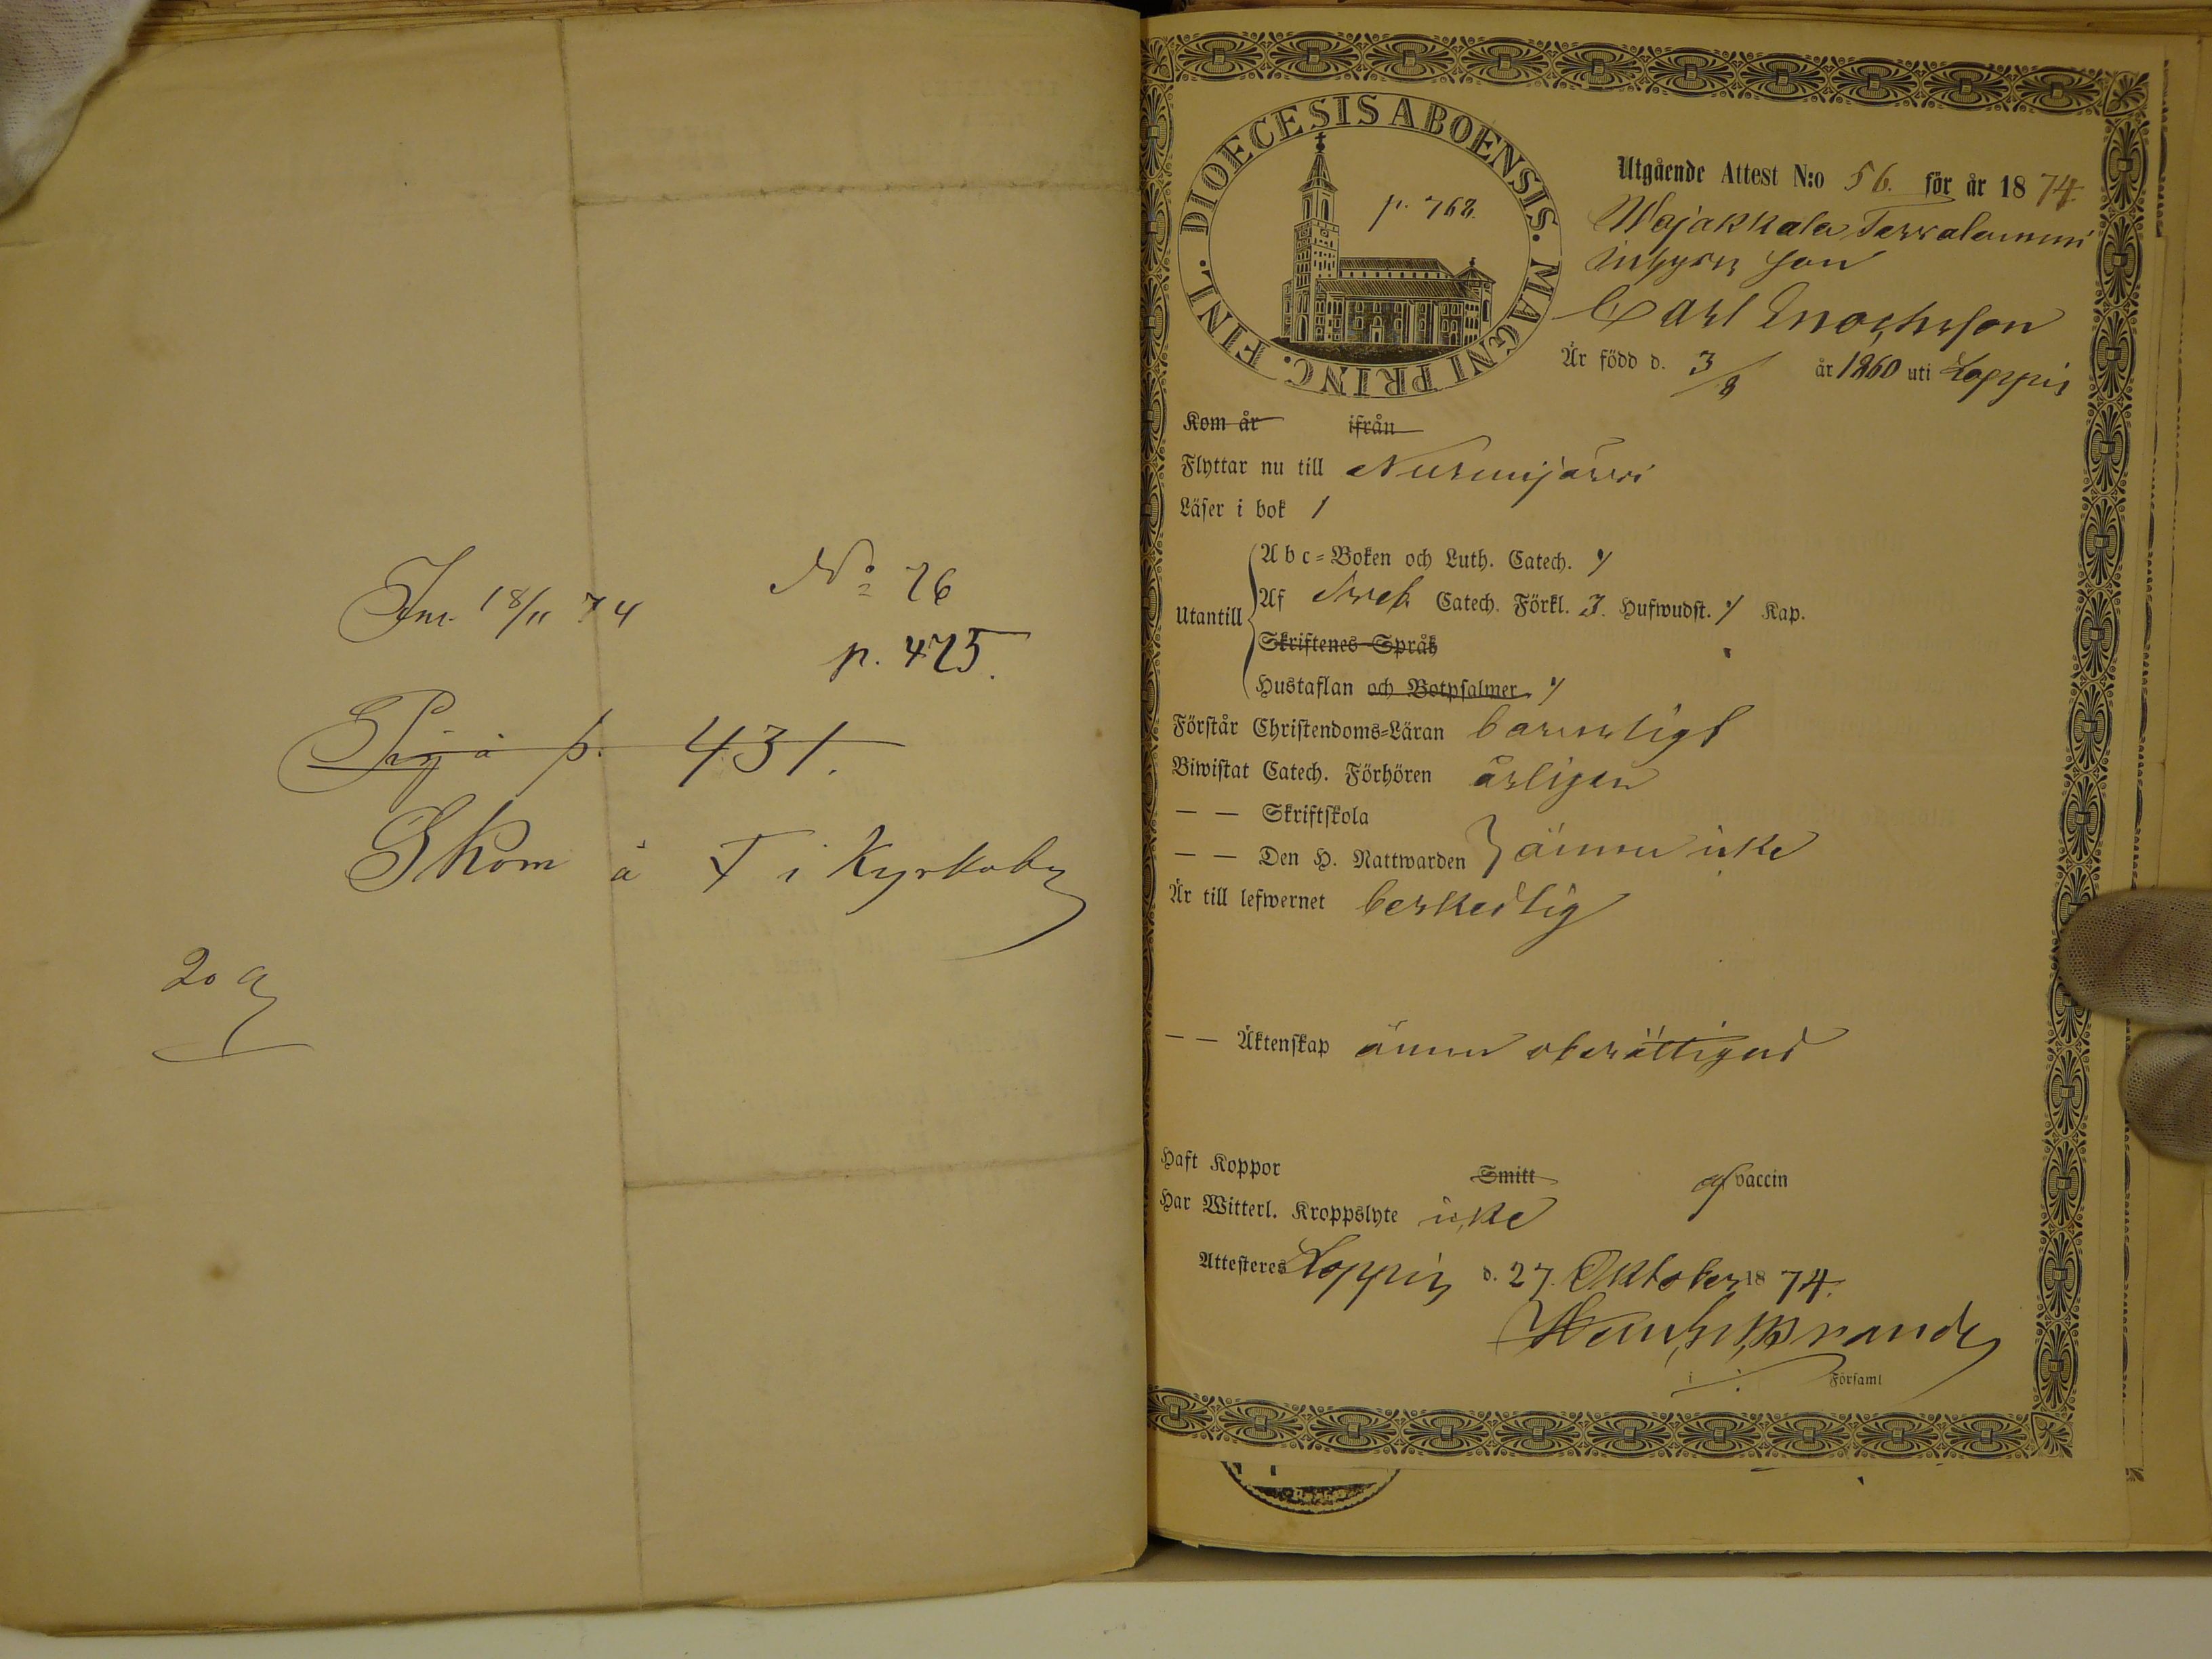 Inr. 18/11 74
No 76
p. 475.
Pig å p. 431.
Skom å T i Kyrkoby
20
DIOECESIS ABOENSIS. MAGNI PRINC. FINL.
p. 768.
Utgående Attest N:o 56. för år 1874
Wojakkala Tervalammi
inhyses son
Carl Enochsson
Är född d. 3/8 år 1860 uti Loppis
Kom år ifrån
Flyttar nu till Nurmijärvi
Läser i bok 1
Utantill
Abc=Boken och Luth. Catech. y
Af Sveb. Catech. Förkl. 3. Hufwudst. y Kap.
Skriftenes Språk
Hustaflan och Botpsalmer y
Förstår Christendoms=Läran barnsligt
Biwistat Catech. Förhören årligen
— — Skriftskola
— — Den H. Nattwarden } ännu icke
Är till lefwernet beskedlig
— — Äktenskap ännu oberättigad
Haft Koppor Smitt af vaccin
Har Witterl. Kroppslyte icke
Attesteres Loppis d. 27. Oktober 1874.
i Församl